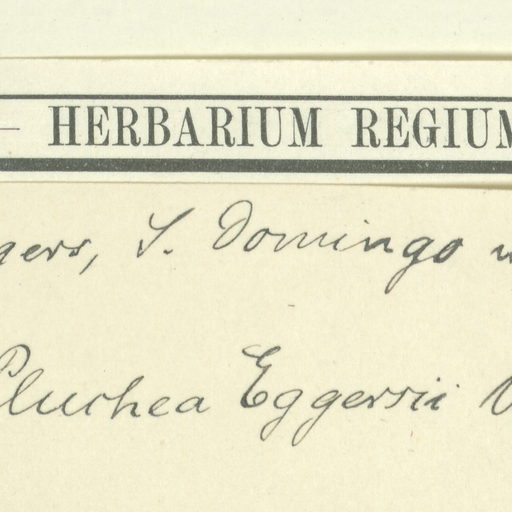 — HERBARIUM REGIUM
gers, S. Domingo
Pluchea Eggersii